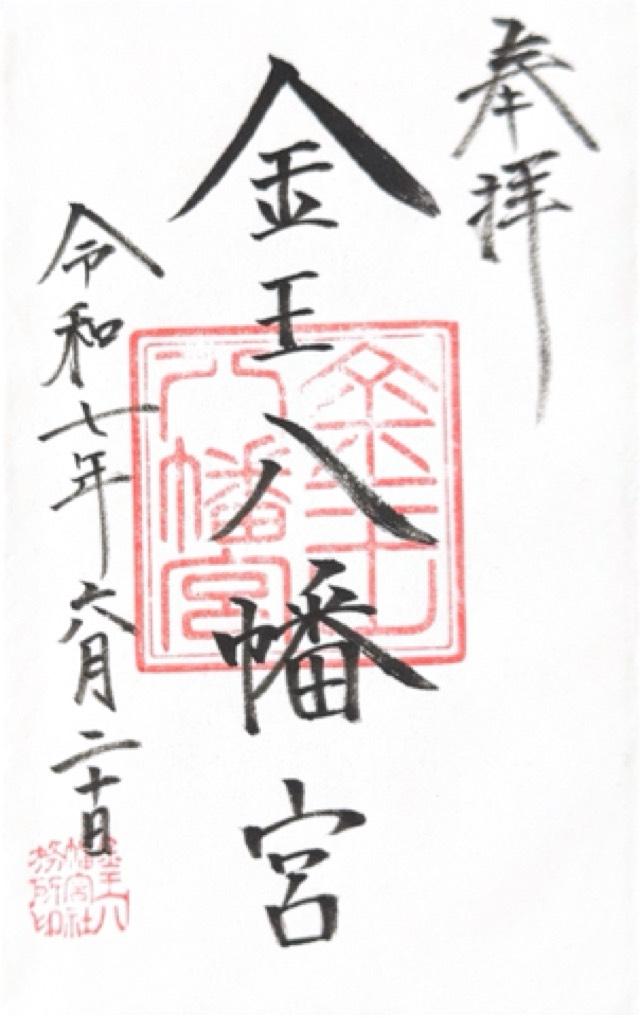 奉拝
金王八幡宮
令和七年六月二十日
金王八幡宮
金王八幡宮社務所印